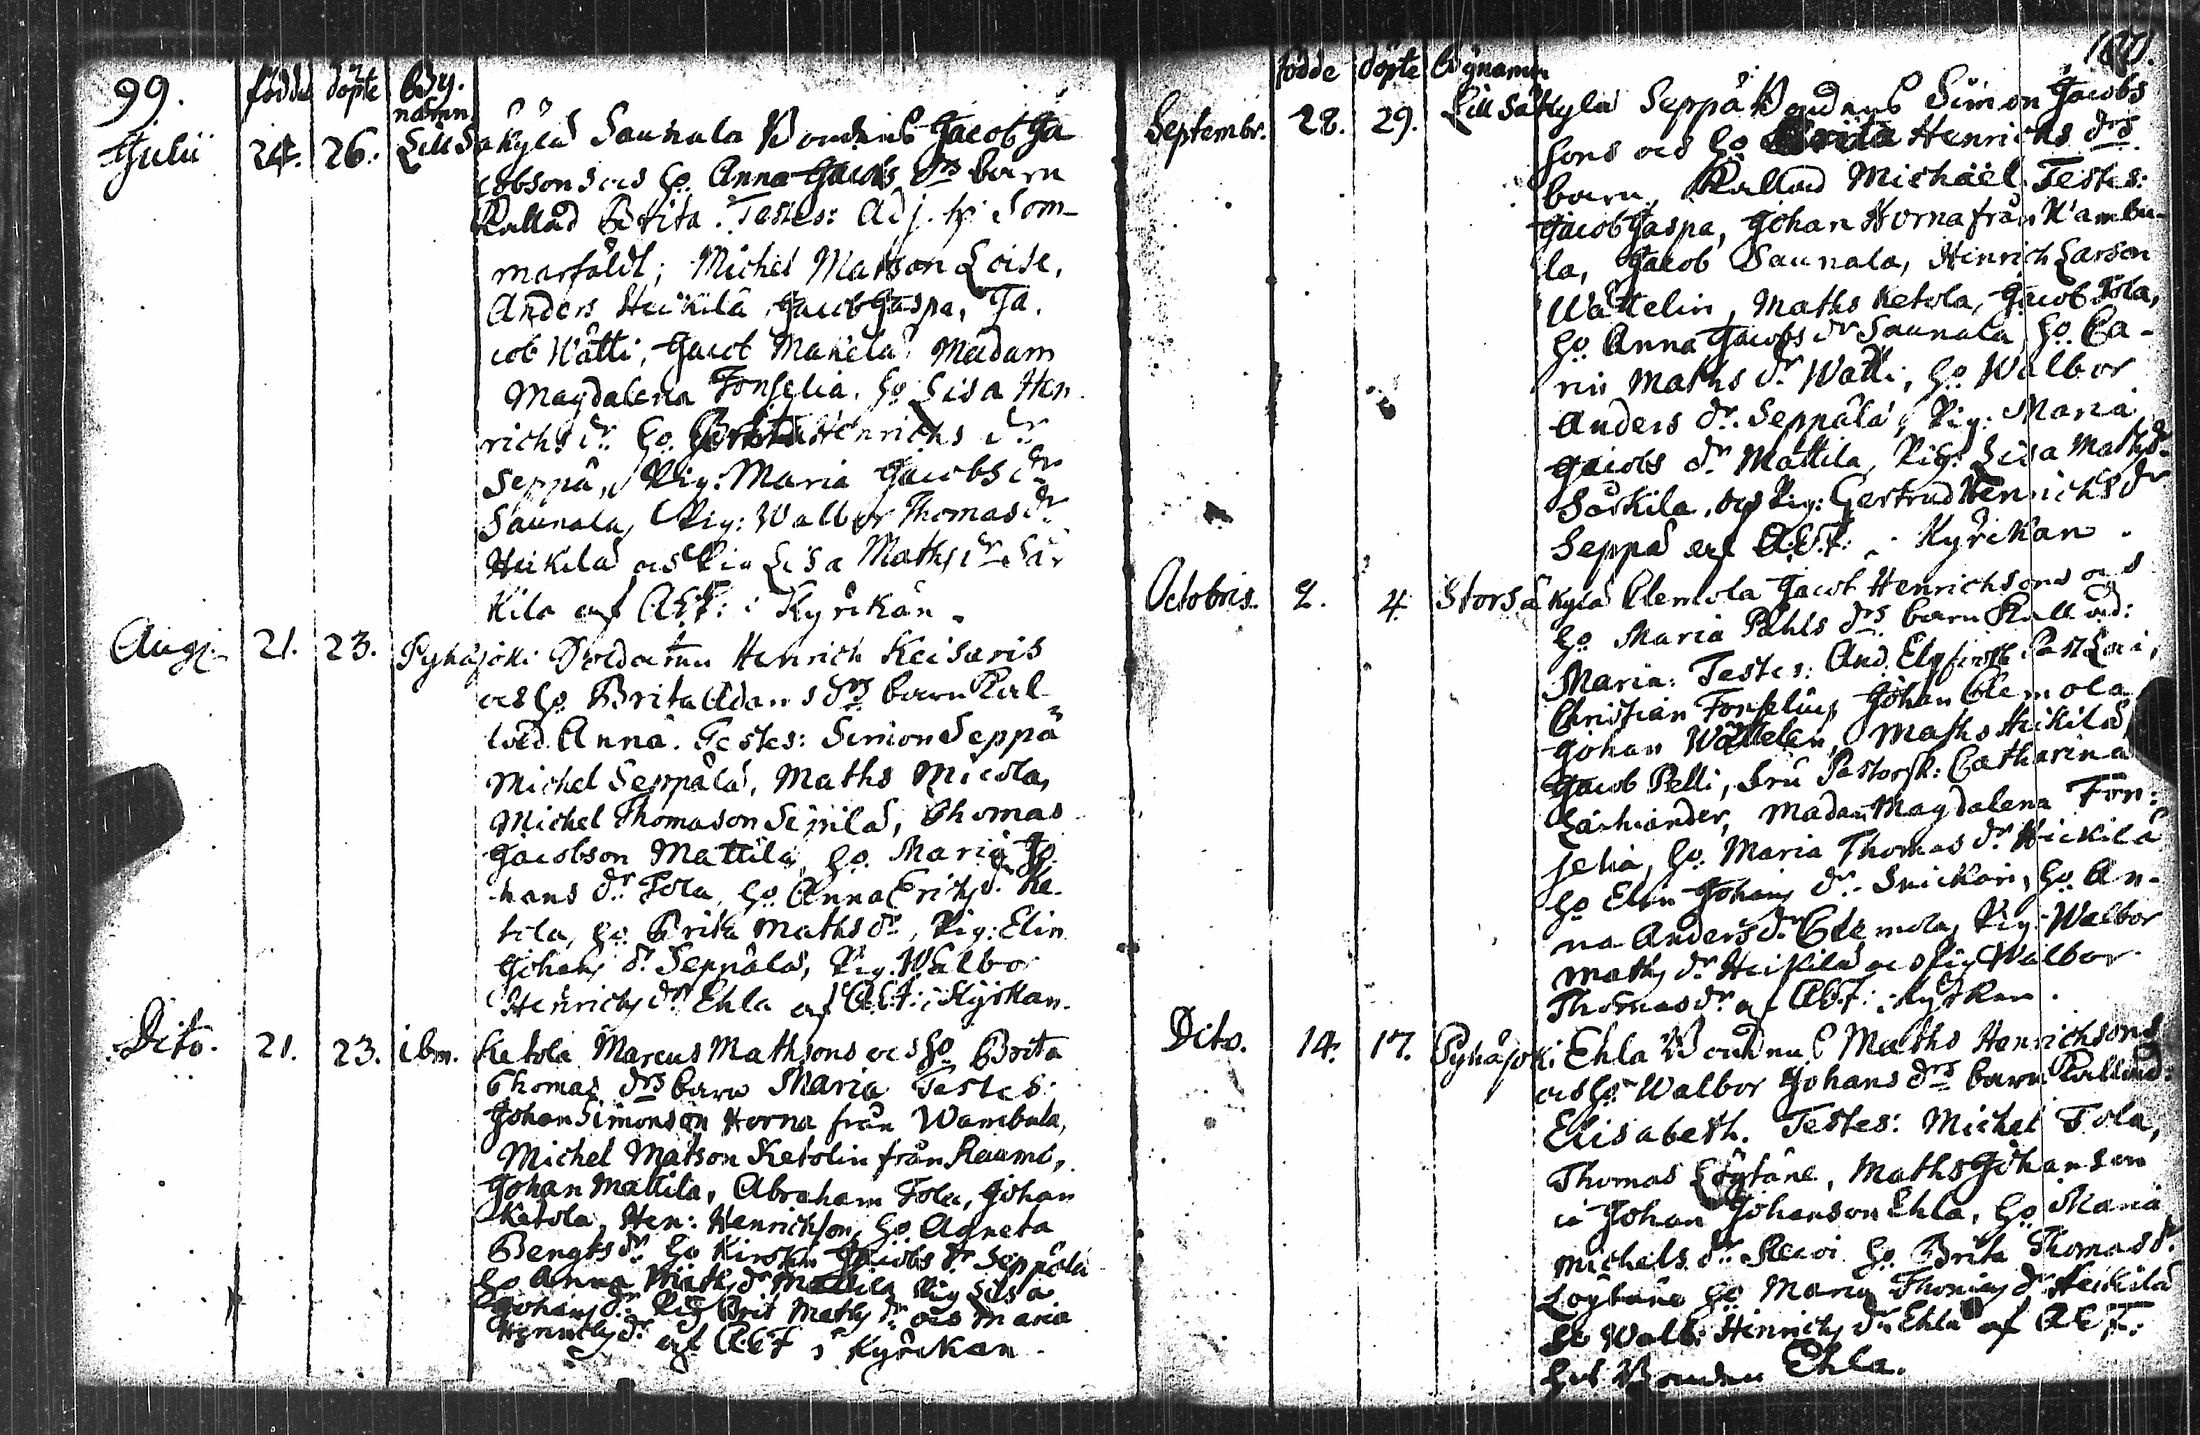 99. födde döpte By.
namn
Julii 24. 26. Lill Säkylä Saunala Bondens Jacob Ja
cobsons och H:o Anna Jacobs drs barn
Kallad Brita. Testes: Adj. Hr Som-
marfäldt; Michel Matson Loise,
Anders Heikilä, Jacob Jaspa, Ja.
cob Wätti, Jacob Makelä, Madam
Magdalena Fonselia, H:o Lisa Hen
richs dr. H:o Brita Henrichs dr
Seppä, Pig: Maria Jacobs dr
Saunala, Pig: Walbor Thomas dr
Heikilä och Pig Lisa Maths dr Sär
kilä af A.E.F: i Kyrikan.
Aug: 21. 23. Pyhäjoki Soldaten Henrich Keisaris
och H:o Brita Adams drs barn Kal
lad. Anna. Testes: Simon Seppä
Michel Seppälä, Maths Micola,
Michel Thomason Seppilä, Thomas
Jacobson Mattila, H:o Maria Jo
hans dr Tola, H:o Anna Erichs d. Ke.
tola, H:o Brita Maths dr, Pig: Elin
Johans dr Seppälä, Pig. Walbor
Henrichs dr Ehla af A.E.F: i Kyrkan.
Dito. 21. 23. ibm. Ketola Marcus Mathsons och H:o Brita
Thomas drs barn Maria Testes:
Johan Simonson Horna från Wambula,
Michel Matson Ketolin från Raumo,
Johan Mattila, Abraham Tola, Johan
Ketola, Hen: Henrichson, H:o Agneta
Bengts dr H:o Kirstin Jacobs dr Seppälä
H:o Anna Maths dr Mattila Pig Lisa
Johans dr Pig Brit Maths dr och Maria
Henrichs dr af A.E.F i Kyrikan.
födde döpte Bynamn
Septembr. 28. 29. Lill Säkylä Seppä Bondens Simon Jacobs
sons och H:o Brita Henrichs drs
barn, Kallad Michäel. Testes:
Jacob Jaspa, Johan Horna från Wambu-
la, Jacob Saunala, Henrich Larson
Wättelin, Maths Ketola, Jacob Tola,
H:o Anna Jacobs dr Saunala, H:o Ca-
rin Maths dr Wätti, H:o Walbor
Anders dr. Seppälä, Pig: Maria
Jacobs dr Mattila, Pig: Lisa Maths dr
Särkila, och Pig: Gertrud Henrichs dr
Seppä af A.E.F: i Kyrikan.
Octobris. 2. 4. Stor Säkylä Clemola Jacob Henrichsons och
H:o Maria Påhls drs barn Kallad:
Maria: Testes: And. Past Loci,
Christian Fonselius Johan Clemola
Johan Wättelin, Maths Heikilä
Jacob Pelli, Fru Pastorsk: Catharina
Madam Magdalena Fon:
selia, H:o Maria Thomas dr Heikilä
H:o Elin Johans dr. Snickari, H:o An-
na Anders dr Clemola, Pig: Walbor
Maths dr Heikilä och Pig Walbor
Thomas dr af A.E.F: i Kyrkan.
Dito. 14. 17. Pyhäjoki Ehla Bondens Maths Henrichsons
och H:o Walbor Johans drs barn Kallad:
Elisabeth. Testes: Michel Tola,
Thomas Löytäne, Maths Johanson
Johan Johanson Ehla, H:o Maria
Michels dr H:o Brita Thomas dr
Löytäne H:o Maria Thomas dr Heikilä
Walb: Henrichs dr Ehla af A.E.F.
hos Bonden Ehla.